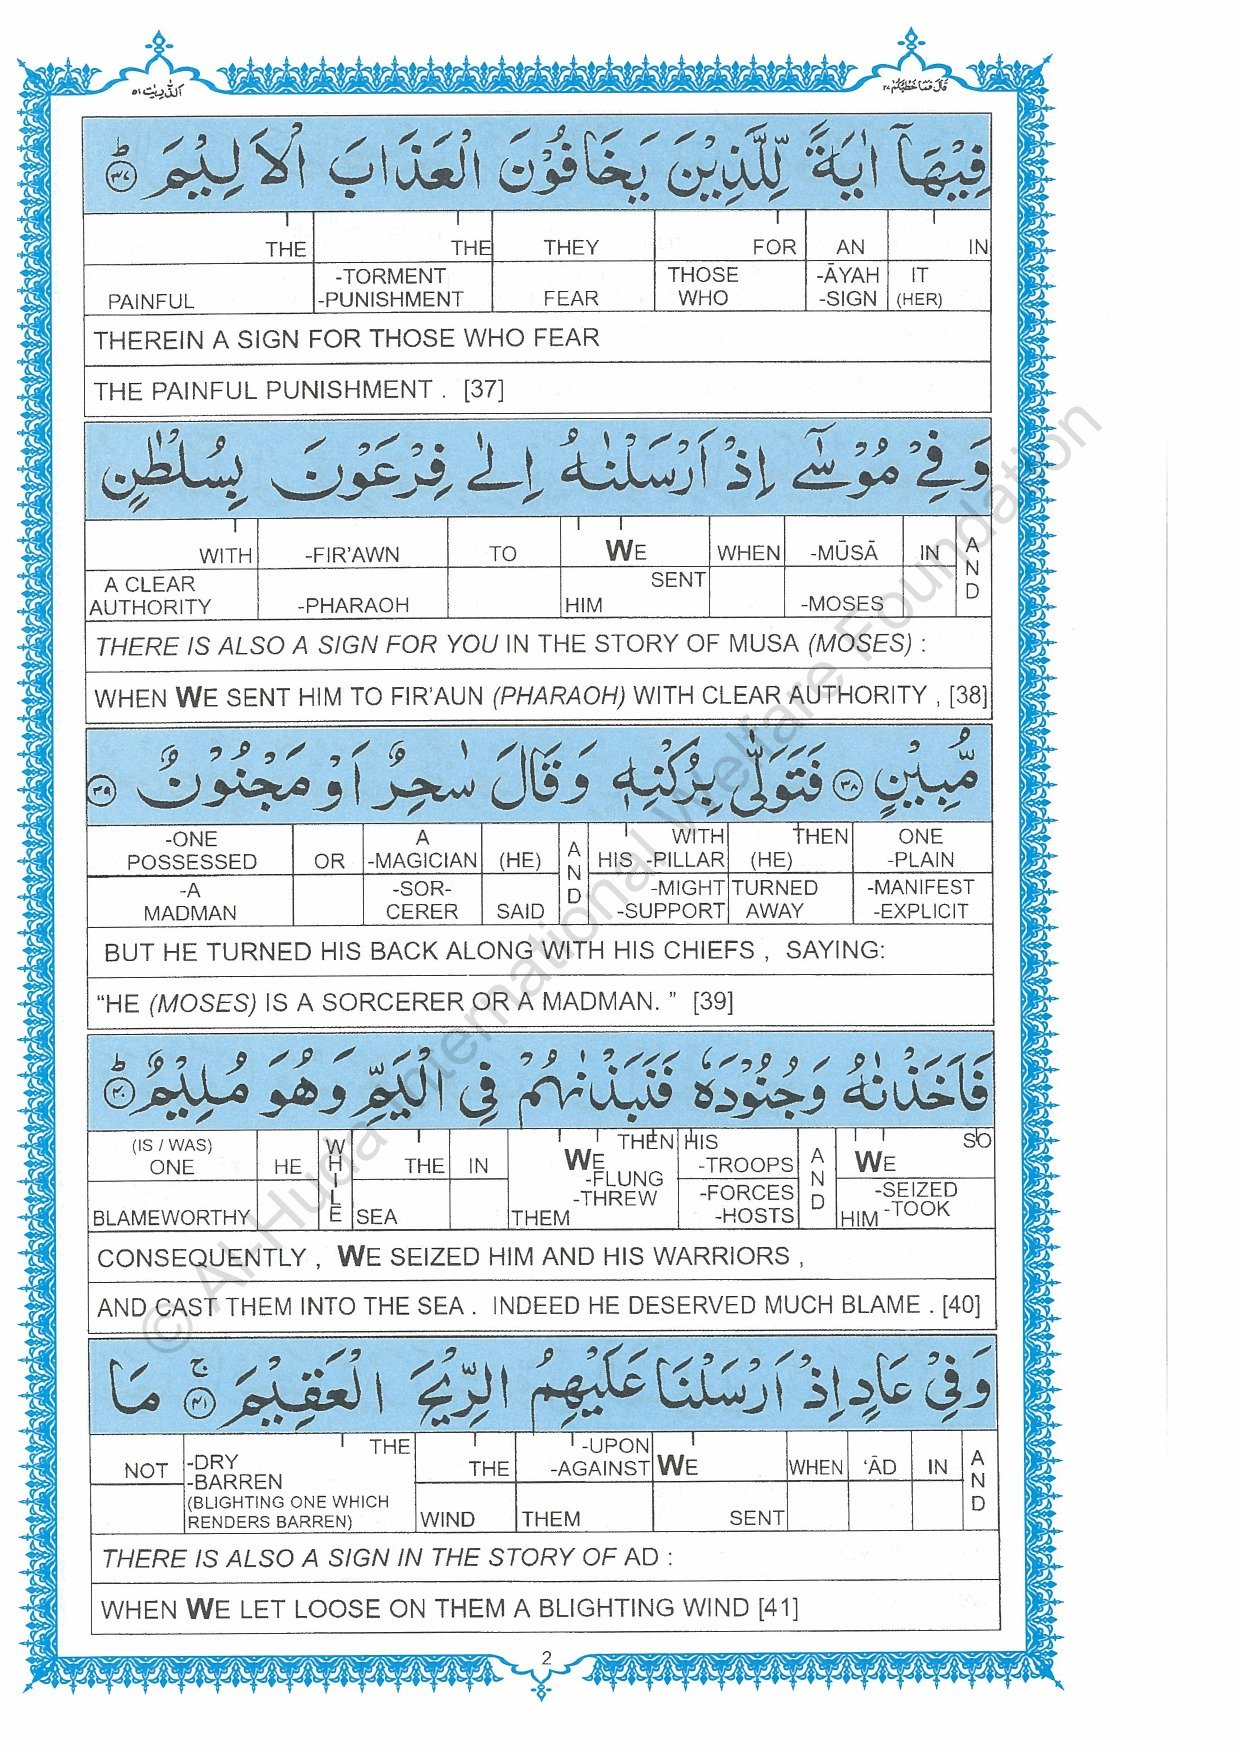 اَلذّٰرِيٰت ٥١
قَالَ فَمَا خَطْبُكُمْ ٢٧
فِيْهَآ اٰيَةً لِّلَّذِيْنَ يَخَافُوْنَ الْعَذَابَ الْاَلِيْمَ ؕ ﴿٣٧﴾
THE THE THEY FOR AN IN
PAINFUL -TORMENT -PUNISHMENT FEAR THOSE WHO -ĀYAH -SIGN IT (HER)
THEREIN A SIGN FOR THOSE WHO FEAR
THE PAINFUL PUNISHMENT . [37]
وَفِيْ مُوْسٰٓى اِذْ اَرْسَلْنٰهُ اِلٰى فِرْعَوْنَ بِسُلْطٰنٍ
WITH -FIR'AWN TO WE WHEN -MŪSĀ IN AND
A CLEAR AUTHORITY -PHARAOH SENT HIM -MOSES
THERE IS ALSO A SIGN FOR YOU IN THE STORY OF MUSA (MOSES) :
WHEN WE SENT HIM TO FIR'AUN (PHARAOH) WITH CLEAR AUTHORITY , [38]
مُّبِيْنٍ ﴿٣٨﴾ فَتَوَلّٰى بِرُكْنِهٖ وَقَالَ سٰحِرٌ اَوْ مَجْنُوْنٌ ﴿٣٩﴾
-ONE POSSESSED OR A -MAGICIAN (HE) AND WITH HIS -PILLAR THEN (HE) ONE -PLAIN
-A MADMAN -SOR-CERER SAID -MIGHT -SUPPORT TURNED AWAY -MANIFEST -EXPLICIT
BUT HE TURNED HIS BACK ALONG WITH HIS CHIEFS , SAYING:
"HE (MOSES) IS A SORCERER OR A MADMAN. " [39]
فَاَخَذْنٰهُ وَجُنُوْدَهٗ فَنَبَذْنٰهُمْ فِي الْيَمِّ وَهُوَ مُلِيْمٌ ؕ ﴿٤٠﴾
(IS / WAS) ONE HE WHILE THE IN THEN WE -FLUNG -THREW HIS -TROOPS AND SO WE
BLAMEWORTHY SEA THEM -FORCES -HOSTS -SEIZED -TOOK HIM
CONSEQUENTLY , WE SEIZED HIM AND HIS WARRIORS ,
AND CAST THEM INTO THE SEA . INDEED HE DESERVED MUCH BLAME . [40]
وَفِيْ عَادٍ اِذْ اَرْسَلْنَا عَلَيْهِمُ الرِّيْحَ الْعَقِيْمَ ۚ ﴿٤١﴾ مَا
NOT THE THE -UPON -AGAINST WE WHEN 'ĀD IN AND
-DRY -BARREN (BLIGHTING ONE WHICH RENDERS BARREN) WIND THEM SENT
THERE IS ALSO A SIGN IN THE STORY OF AD :
WHEN WE LET LOOSE ON THEM A BLIGHTING WIND [41]
2
© Al-Huda International Welfare Foundation